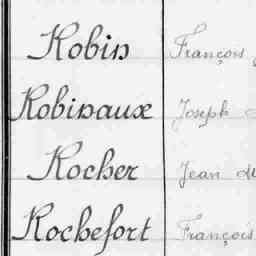 Robin François
Robinaux Joseph
Rocher Jean de
Rochefort François